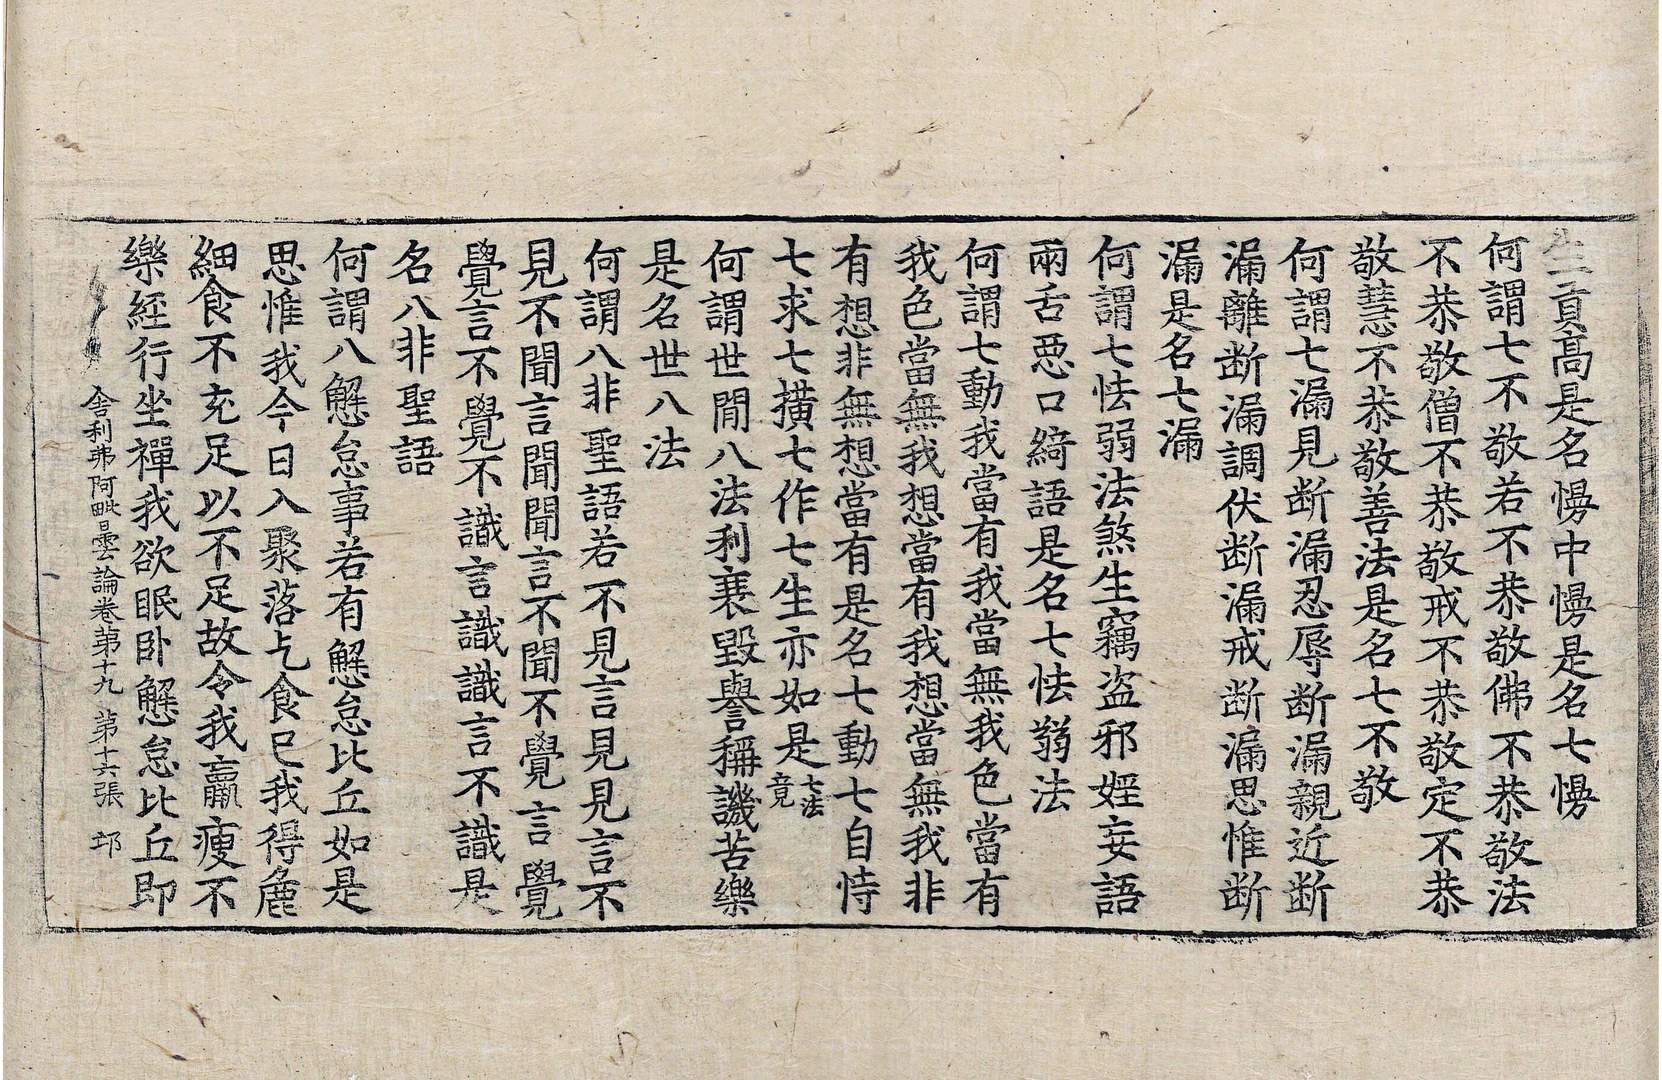 生貢高是名慢中慢是名七慢
何謂七不敬若不恭敬佛不恭敬法
不恭敬僧不恭敬戒不恭敬定不恭
敬慧不恭敬善法是名七不敬
何謂七漏見断漏忍辱断漏親近断
漏離断漏調伏断漏戒断漏思惟断
漏是名七漏
何謂七怯弱法煞生竊盗邪婬妄語
兩舌惡口綺語是名七怯弱法
何謂七動我當有我當無我色當有
我色當無我想當有我想當無我非
有想非無想當有是名七動七自恃
七求七撗七作七生亦如是七法竟
何謂世閒八法利衰毀譽稱譏苦樂
是名世八法
何謂八非聖語若不見言見見言不
見不聞言聞聞言不聞不覺言覺
覺言不覺不識言識識言不識是
名八非聖語
何謂八懈怠事若有懈怠比丘如是
思惟我今日入聚落乞食已我得麁
細食不充足以不足故令我羸瘦不
樂經行坐禪我欲眠卧懈怠比丘即
舍利弗阿毗曇論卷第十九 第十六張 邙